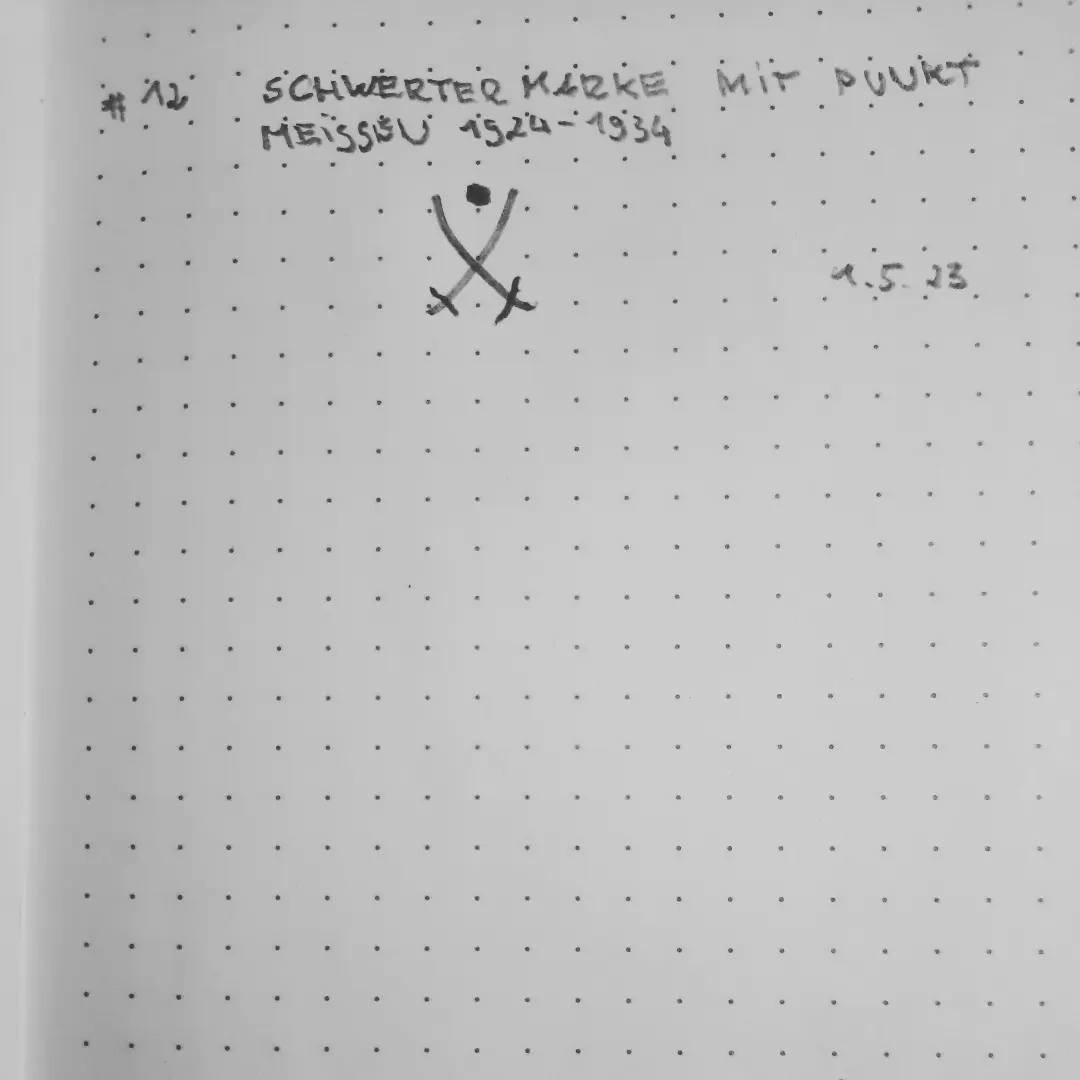 # 12 SCHWERTER MARKE MIT PUNKT
MEISSEN 1924-1934
1.5.23